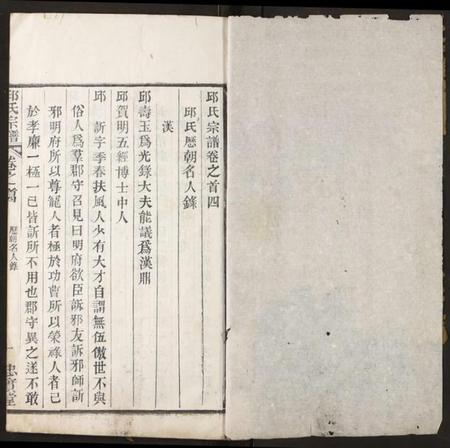 邱氏宗譜卷之首四
邱氏歷朝名人錄
漢
邱壽玉爲光錄大夫能議爲漢鼎
邱賀明五經博士中人
邱訢字季春扶風人少有大才自謂無伍傲世不與
俗人爲羣郡守召見曰明府欲臣訢邪友訢邪師訢
邪明府所以尊寵人者極於功曹所以榮祿人者已
於孝廉一極一已皆訢所不用也郡守異之遂不敢
邱氏宗譜
卷之首
歷朝名人錄
一
忠實堂